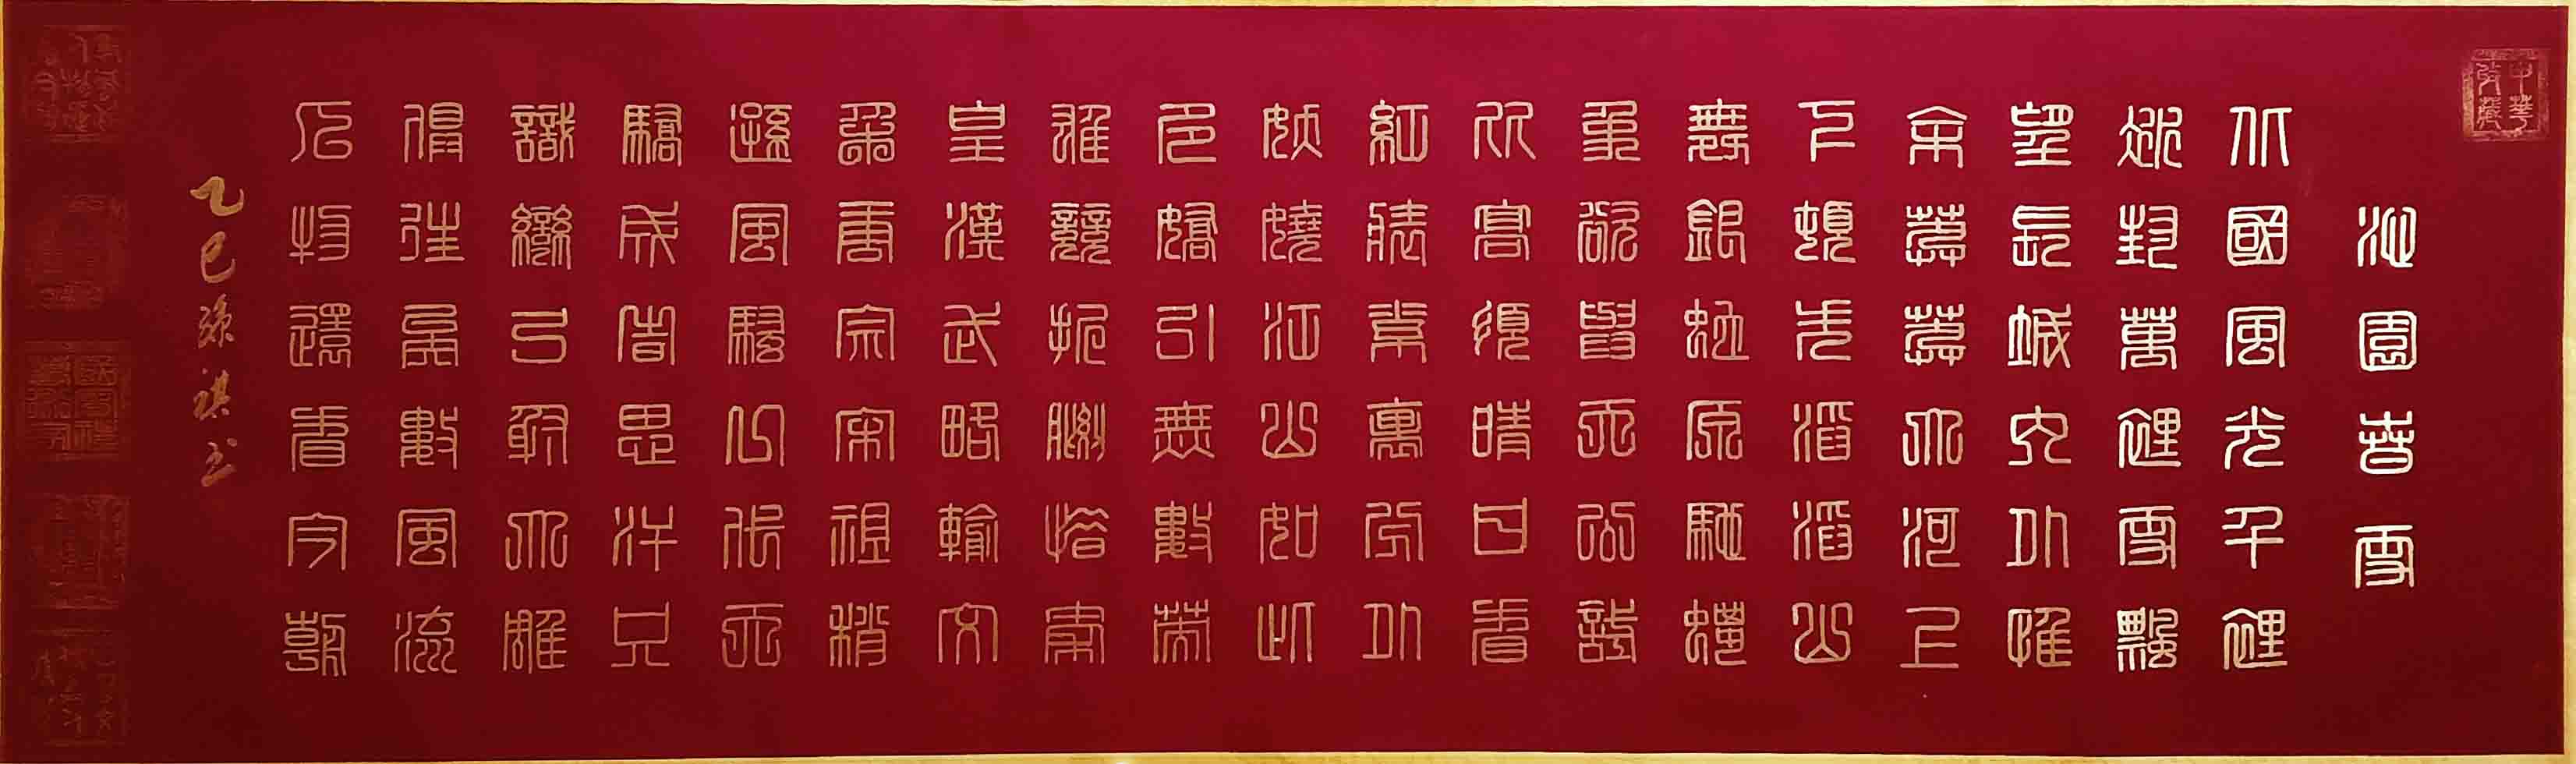 沁園春雪
北國風光千里
冰封萬里雪飄
望長城內外惟
余莽莽大河上
下頓失滔滔山
舞銀蛇原馳蠟
象欲與天公試
比高須晴日看
紅裝素裹分外
妖嬈江山如此
多嬌引無數英
雄競折腰惜秦
皇漢武略輸文
采唐宗宋祖稍
遜風騷一代天
驕成吉思汗只
識彎弓射大雕
俱往矣數風流
人物還看今朝
乙巳孫祺書